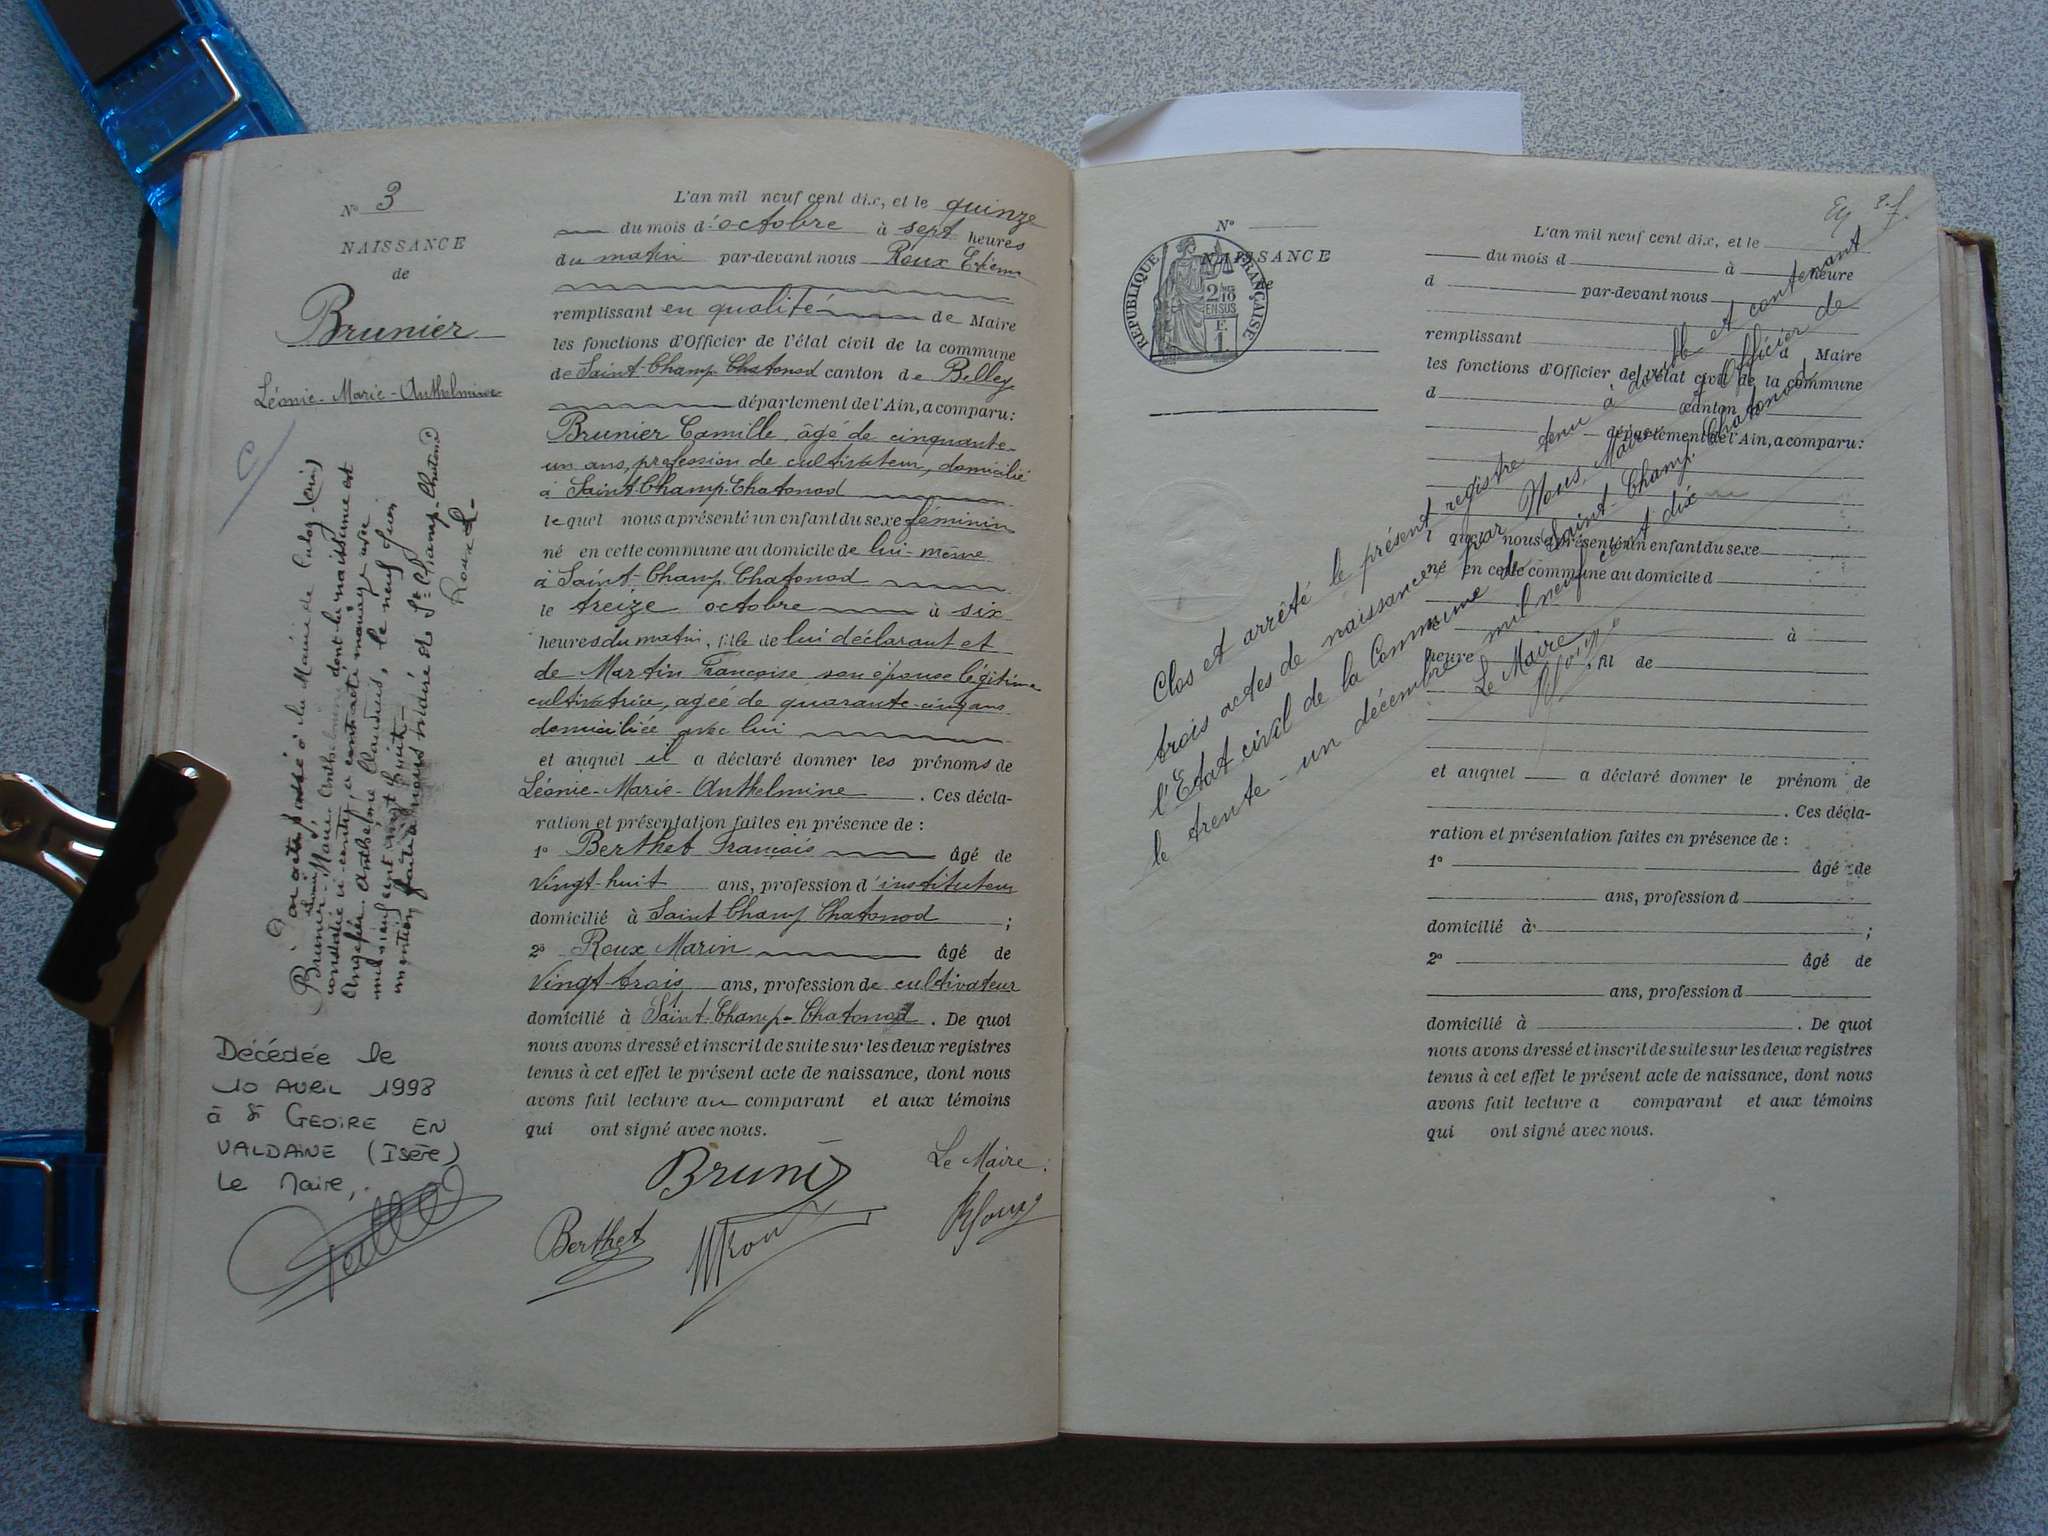 N° 3
NAISSANCE
de
Brunier
Léonie-Marie-Anthelmine
C
Par acte passé à la Mairie de Culoz (Ain)
Brunier Léonie, Marie Anthelmine dont la naissance est
constatée ci-contre, a contracté mariage avec
Anthelme Claudius, le neuf Juin
mil neuf cent vingt huit.
mention faite à nous maire de St Champ-Chatonod
Roux
Décédée le
10 AVRIL 1998
à St GEOIRE EN
VALDAINE (Isère)
Le Maire,
L'an mil neuf cent dix, et le quinze
du mois d'octobre à sept heures
du matin par-devant nous Roux Etienne
remplissant en qualité de Maire
les fonctions d'Officier de l'état civil de la commune
de Saint-Champ-Chatonod canton de Belley
département de l'Ain, a comparu:
Brunier Camille, âgé de cinquante-
un ans, profession de cultivateur, domicilié
à Saint-Champ-Chatonod
lequel nous a présenté un enfant du sexe féminin
né en cette commune au domicile de lui-même
à Saint-Champ-Chatonod
le treize octobre à six
heures du matin, fille de lui déclarant et
de Martin Françoise son épouse légitime
cultivatrice, agée de quarante-cinq ans
domiciliée avec lui
et auquel il a déclaré donner les prénoms de
Léonie-Marie-Anthelmine. Ces décla-
ration et présentation faites en présence de :
1° Berthet François âgé de
vingt-huit ans, profession d'instituteur
domicilié à Saint Champ Chatonod ;
2° Roux Marin âgé de
vingt-trois ans, profession de cultivateur
domicilié à Saint-Champ-Chatonod. De quoi
nous avons dressé et inscrit de suite sur les deux registres
tenus à cet effet le présent acte de naissance, dont nous
avons fait lecture au comparant et aux témoins
qui ont signé avec nous.
Brunier
Le Maire :
Berthet
MRoux
Roux
N°
NAISSANCE
de
RÉPUBLIQUE FRANÇAISE
2/10
EN SUS
F.
1.
L'an mil neuf cent dix, et le
du mois d à heure
d par-devant nous
remplissant d Maire
les fonctions d'Officier de l'état civil de la commune
d canton
département de l'Ain, a comparu:
quel nous a présenté un enfant du sexe
né en cette commune au domicile d
à
heure , fil de
et auquel a déclaré donner le prénom de
. Ces décla-
ration et présentation faites en présence de :
1° âgé de
ans, profession d
domicilié à ;
2° âgé de
ans, profession d
domicilié à . De quoi
nous avons dressé et inscrit de suite sur les deux registres
tenus à cet effet le présent acte de naissance, dont nous
avons fait lecture a comparant et aux témoins
qui ont signé avec nous.
Clos et arrêté le présent registre tenu à double et contenant
trois actes de naissance par Nous, Maire Officier de
l'Etat civil de la Commune de Saint-Champ-Chatonod
le trente-un décembre mil neuf cent dix
Le Maire
Roux